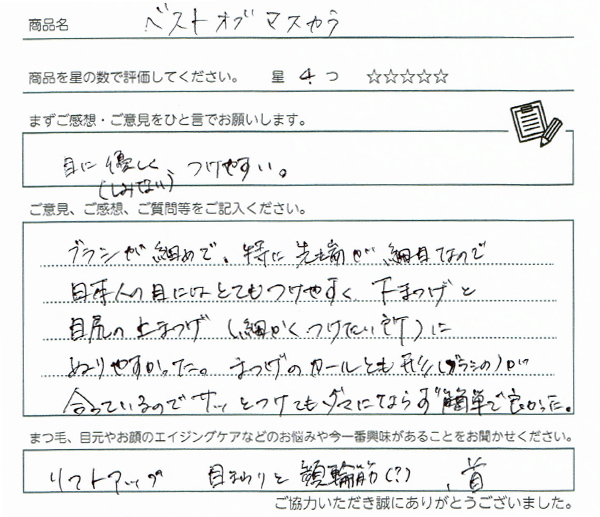 商品名 ベストオブマスカラ
商品を星の数で評価してください。 星 4 つ ☆☆☆☆☆
まずご感想・ご意見をひと言でお願いします。
目に優しく、つけやすい。
(しみない)
ご意見、ご感想、ご質問等をご記入ください。
ブラシが細めで、特に先端が細目なので
日本人の目にはとてもつけやすく 下まつげと
目尻の上まつげ (細かくつけたい所)に
ぬりやすかった。まつげのカールとも形(ブラシの)が
合っているのでサッとつけてもダマにならず簡単で良かった。
まつ毛、目元やお顔のエイジングケアなどのお悩みや今一番興味があることをお聞かせください。
リフトアップ 目まわりと額輪筋(?)、首
ご協力いただき誠にありがとうございました。